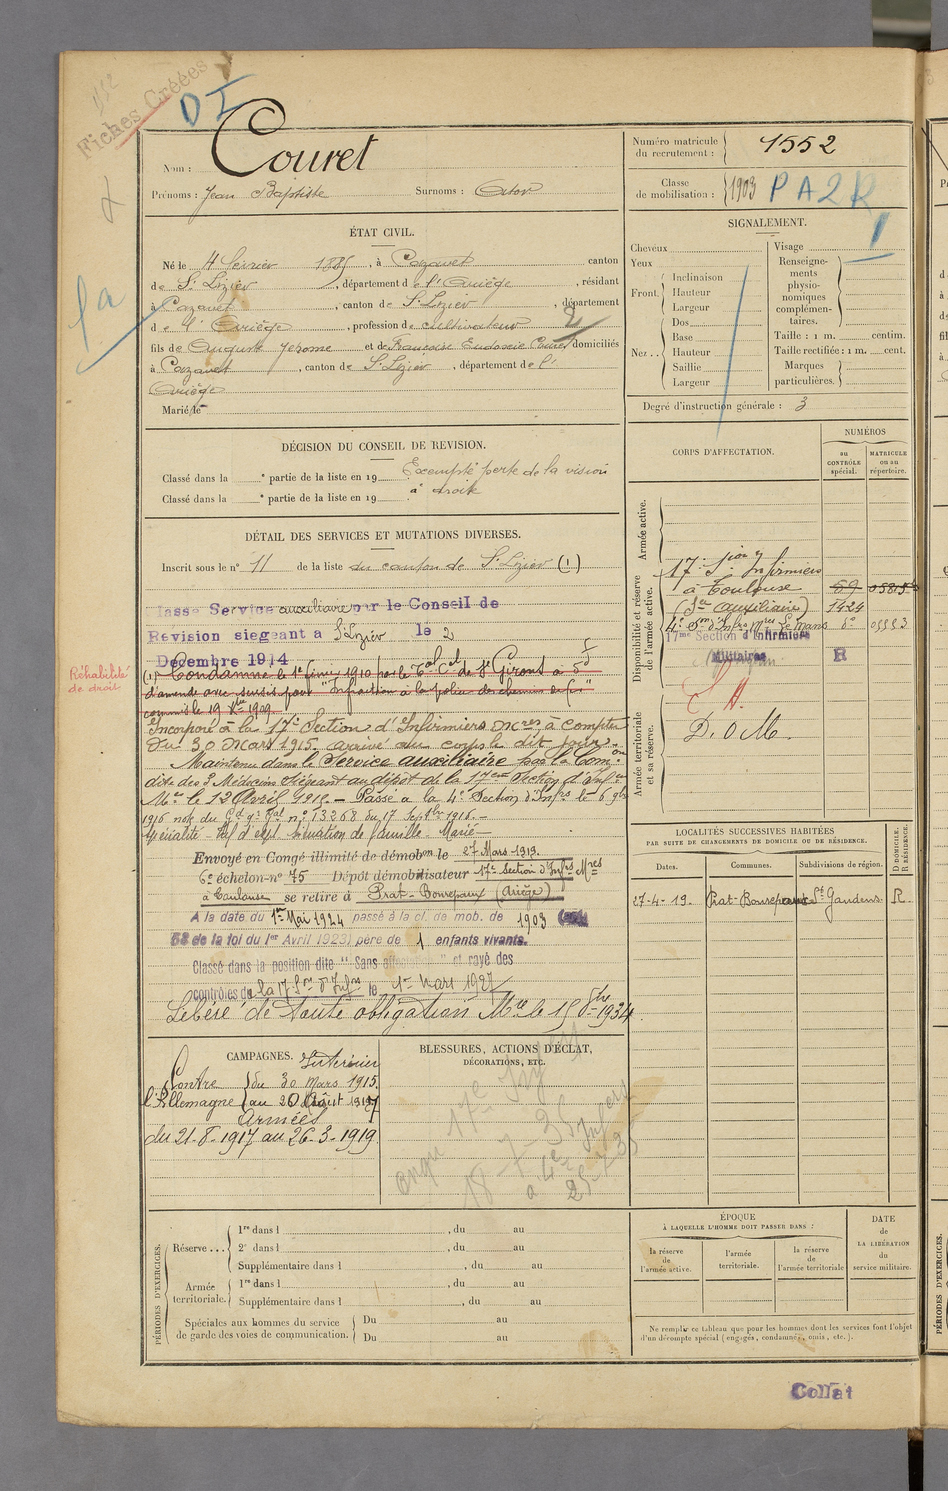 Fiches Créées
D I
Nom : Couret
Prénoms : Jean Baptiste Surnoms :
Numéro matricule du recrutement : 1552
Classe de mobilisation : 1903 P A 2 R
ÉTAT CIVIL.
Né le 4 février 1885, à Cazavet canton
de St Lizier, département de l'Ariège, résidant
à Cazavet, canton de St Lizier, département
de l'Ariège, profession de cultivateur
fils de Auguste Jérome et de Francoise Eudoxie Couret domiciliés
à Cazavet, canton de St Lizier, département de l'
Ariège
Marié le
SIGNALEMENT.
Cheveux
Yeux
Front. Inclinaison
Hauteur
Largeur
Nez... Dos
Base
Hauteur
Saillie
Largeur
Visage
Renseigne-
ments
physio-
nomiques
complémen-
taires.
Taille : 1 m. centim.
Taille rectifiée : 1 m. cent.
Marques
particulières.
Degré d'instruction générale : 3
DÉCISION DU CONSEIL DE REVISION.
Classé dans la e partie de la liste en 19 Exempté perte de la vision
Classé dans la e partie de la liste en 19 à droite
DÉTAIL DES SERVICES ET MUTATIONS DIVERSES.
Inscrit sous le n° 11 de la liste du canton de St Lizier (1)
Classé Service auxiliaire par le Conseil de
Revision siegeant a St Lizier le 2
Décembre 1914
Réhabilité
de droit
(1) Condamné le 1er février 1910 par le Tal Cel de St Girons à 5f
d'amende avec sursis pour "Infraction à la police des chemins de fer"
commis le 19 1909.
Incorporé à la 17e Section d'Infirmiers Mres à compter
du 30 Mars 1915. arrivé au corps le dit jour.
Maintenu dans le Service auxiliaire par la Comon
dite des 3 Médecins siégeant au dépôt de la 17eme Section d'Infers
Mre le 12 Avril 1915. – Passé a la 4e Section d'Infrs le 6 9bre
1916 note du Gd Qr Gal n° 13268 du 17 Septbre 1916. –
Spécialité – situation de famille. Marié –
Envoyé en Congé illimité de démobon le 27 Mars 1919.
6e échelon-n° 75 Dépôt démobilisateur 17e Section d'Infrs Mres
à Toulouse se retire à Prat-Bonrepaux (Ariège)
A la date du 1er Mai 1924 passé à la cl. de mob. de 1903
58 de la loi du 1er Avril 1923) père de 1 enfants vivants.
Classé dans la position dite "Sans affectation" et rayé des
contrôles de la 17 Son d'Infrs le 1er Mars 1927
Libéré de toute obligation Mre le 15 8bre 1934.
CORPS D'AFFECTATION.
NUMÉROS
au CONTRÔLE spécial.
MATRICULE ou au répertoire.
Armée active.
Disponibilité et réserve de l'armée active.
17e Sion Infirmiers
à Toulouse 69
(Sce auxiliaire) 1424
4e Son d'Infrs Mres Le Mans
17me Section d'Infirmiers
Militaires R
Armée territoriale et sa réserve.
D. O M.
LOCALITÉS SUCCESSIVES HABITÉES
PAR SUITE DE CHANGEMENTS DE DOMICILE OU DE RÉSIDENCE.
Dates. Communes. Subdivisions de région. D DOMICILE. R RÉSIDENCE.
27-4-19. Prat-Bonrepaux St Gaudens. R.
CAMPAGNES.
Intérieur
Contre l'Allemagne du 30 Mars 1915.
au 20 Août 1917
Armées
du 21-8-1917 au 26-3-1919
BLESSURES, ACTIONS D'ÉCLAT,
DÉCORATIONS, ETC.
PÉRIODES D'EXERCICES.
Réserve... 1re dans l , du au
2e dans l , du au
Supplémentaire dans l , du au
Armée territoriale. 1re dans l , du au
Supplémentaire dans l , du au
Spéciales aux hommes du service
de garde des voies de communication. Du au
Du au
ÉPOQUE
À LAQUELLE L'HOMME DOIT PASSER DANS :
la réserve de l'armée active.
l'armée territoriale.
la réserve de l'armée territoriale
DATE de LA LIBÉRATION du service militaire.
Ne remplir ce tableau que pour les hommes dont les services font l'objet
d'un décompte spécial (engagés, condamnés, omis, etc.).
Collat